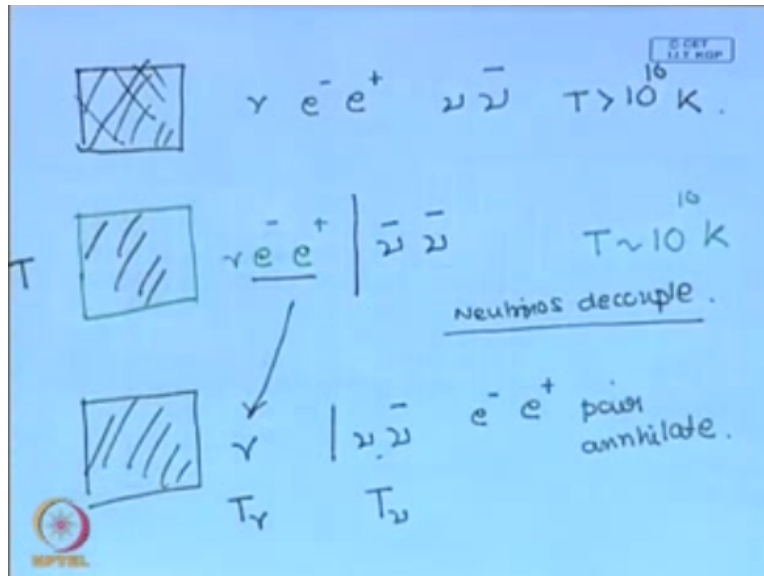 © CET
I.I.T. KGP
γ e⁻ e⁺ ν ν̄ T > 10¹⁰ K.
T γ e⁻ e⁺ | ν̄ ν̄ T ~ 10¹⁰ K
Neutrinos decouple.
γ | ν ν̄ e⁻ e⁺ pair
annhilate.
Tγ Tν
NPTEL